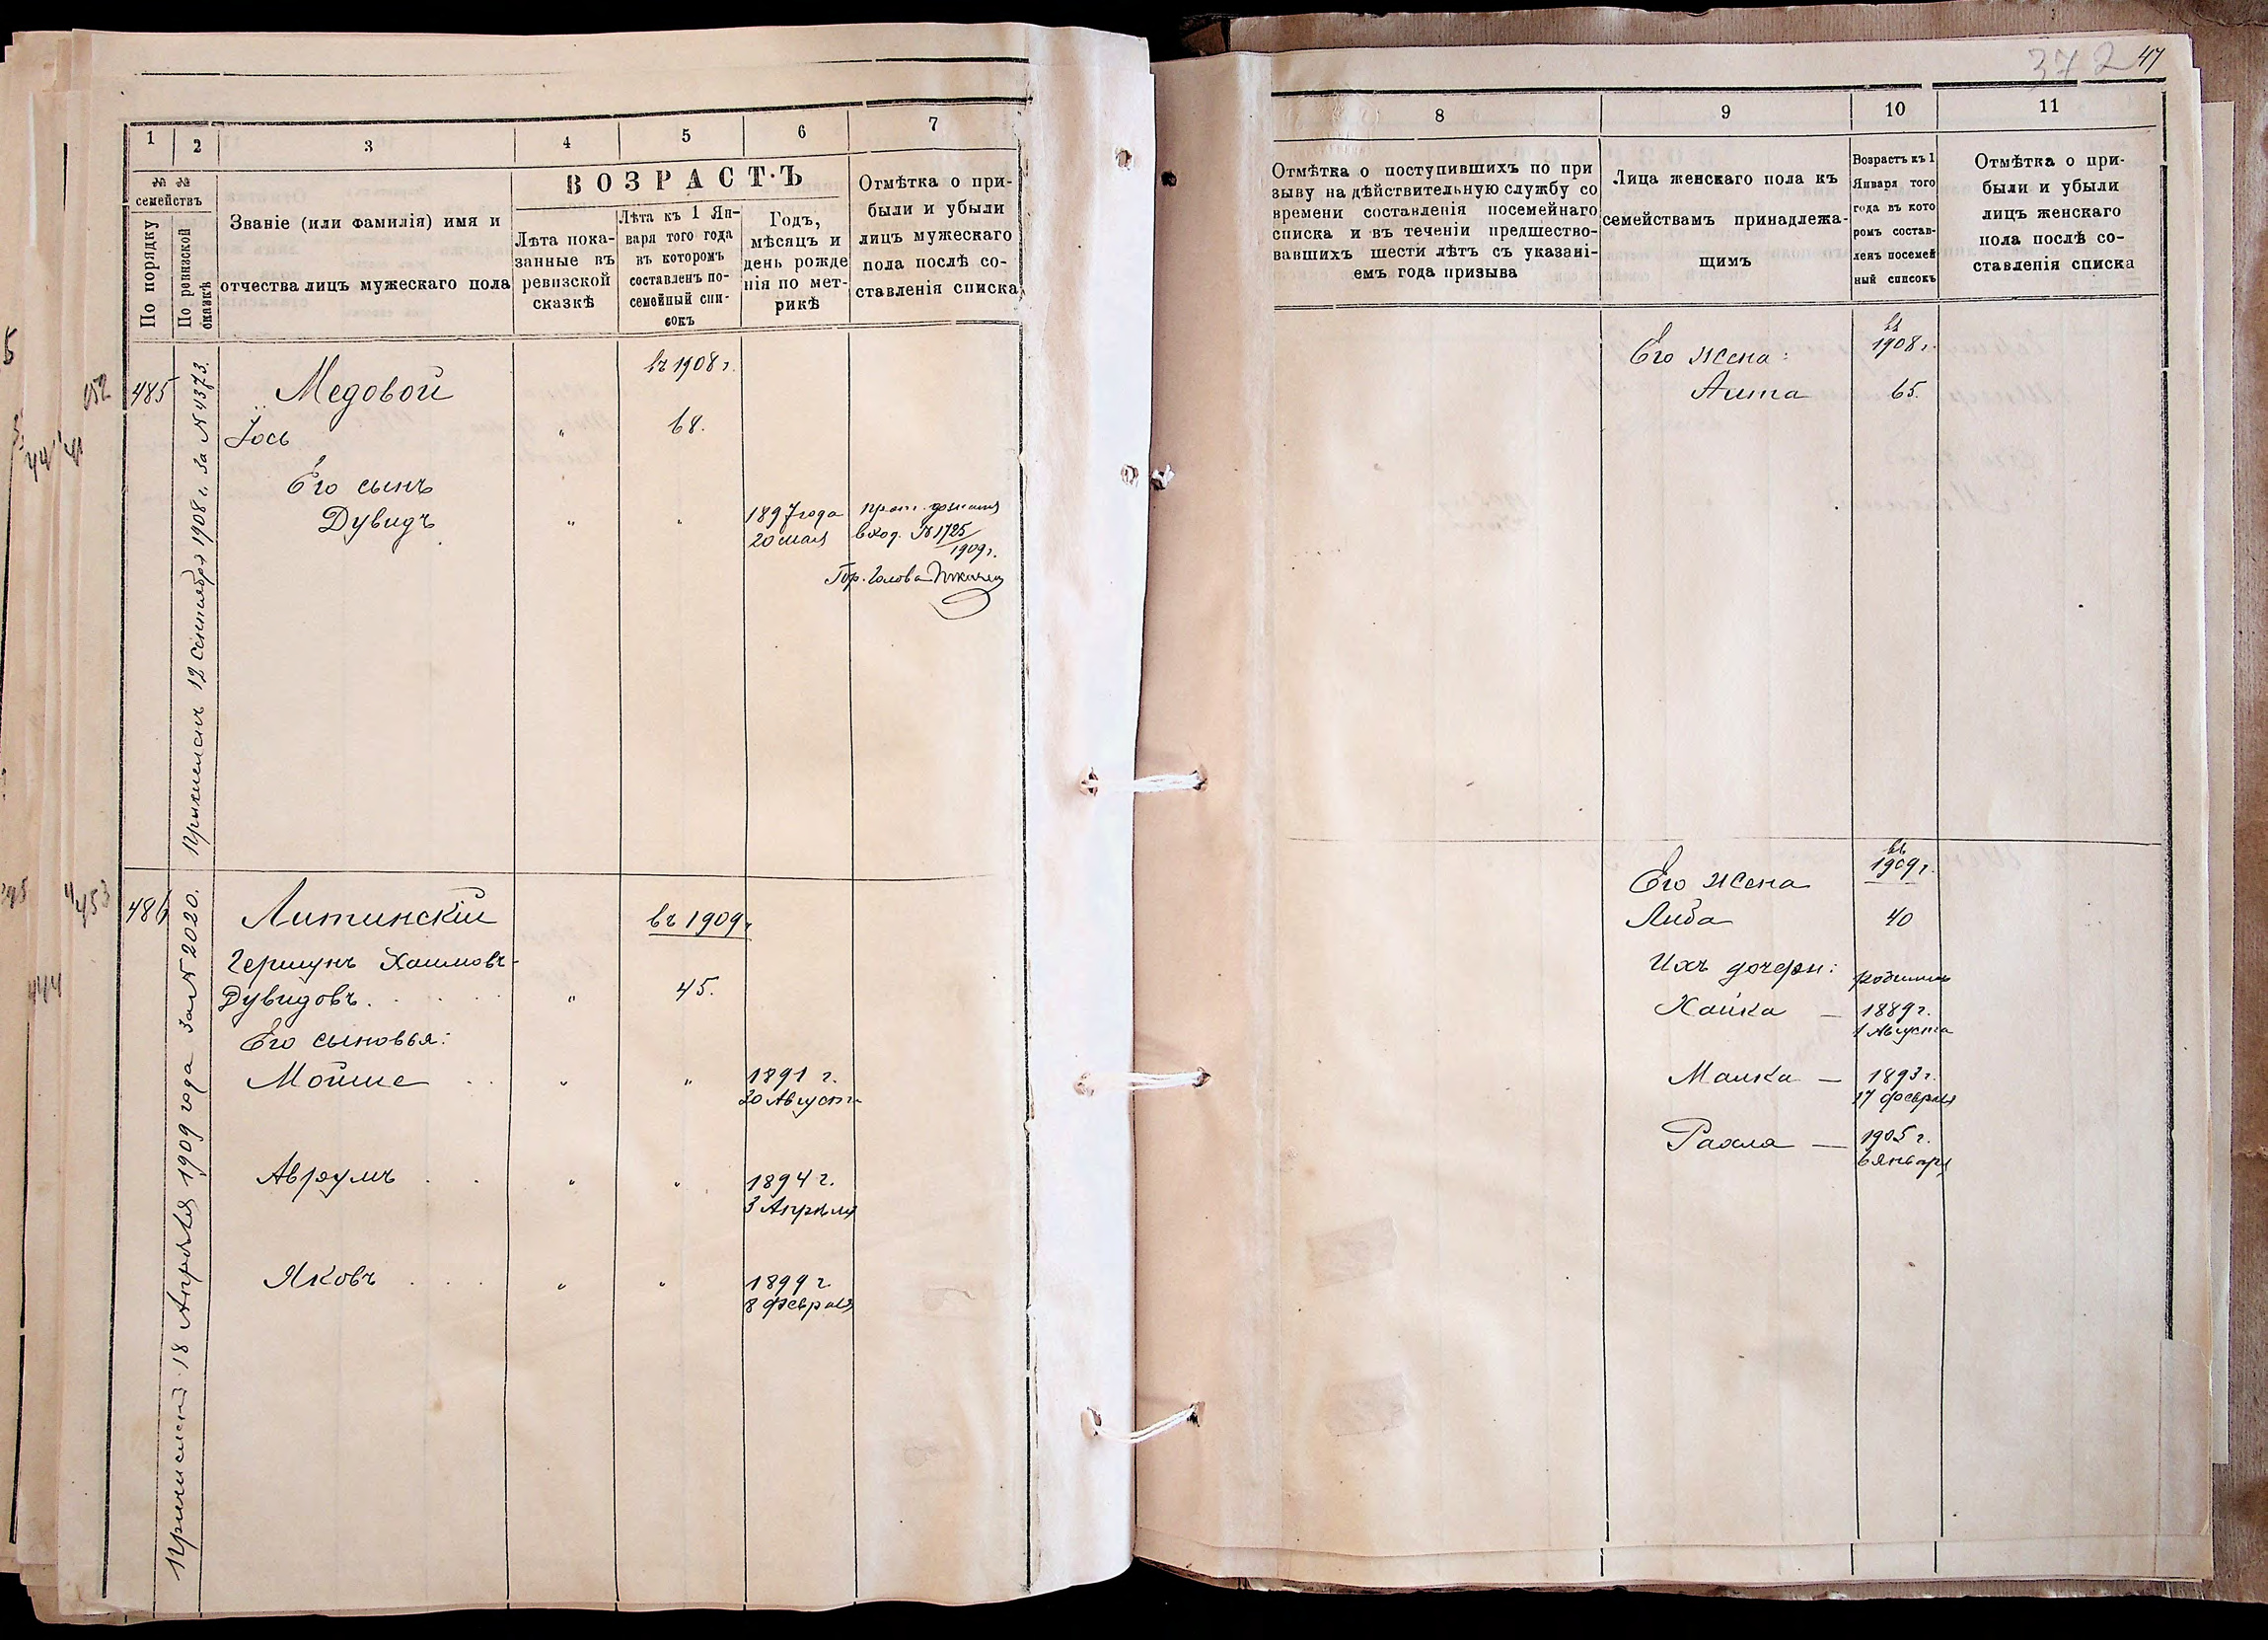 1
2
3
4
5
6
7
№ №
семействъ
По порядку
По ревизской
сказкѣ
Званіе (или фамилія) имя и
отчества лицъ мужескаго пола
ВОЗРАСТЪ
Лѣта пока-
занные въ
ревизской
сказкѣ
Лѣта къ 1 Ян-
варя того года
въ которомъ
составленъ по-
семейный спи-
сокъ
Годъ,
мѣсяцъ и
день рожде
нія по мет-
рикѣ
Отмѣтка о при-
были и убыли
лицъ мужескаго
пола послѣ со-
ставленія списка
485
Причисленъ 12 Сентября 1908 г. за № 4373.
Медовой
въ 1908 г.
Іось
"
68.
Его сынъ
Дувидъ
"
"
1897 года
20 мая
вход. № 1725/
1909 г.
Гор. Голова
486
Причислены 18 Апрѣля 1909 года за № 2020.
Литинскій
въ 1909 г.
Гершунъ Хаимовъ-
Дувидовъ.
"
45.
Его сыновья:
Мойше
"
"
1891 г.
20 Августа
Аврумъ
"
"
1894 г.
3 Апрѣля
Яковъ
"
"
1899 г.
8 февраля
372
47
8
9
10
11
Отмѣтка о поступившихъ по при
зыву на дѣйствительную службу со
времени составленія посемейнаго
списка и въ теченіи предшество-
вавшихъ шести лѣтъ съ указані-
емъ года призыва
Лица женскаго пола къ
семействамъ принадлежа-
щимъ
Возрастъ къ 1
Января того
года въ кото
ромъ состав-
ленъ посемей
ный списокъ
Отмѣтка о при-
были и убыли
лицъ женскаго
пола послѣ со-
ставленія списка
Его жена:
въ
1908 г.
Аита
65.
Его жена
въ
1909 г.
Либа
40
Ихъ дочери:
родились
Хайка —
1889 г.
1 Августа
Малка —
1893 г.
17 февраля
Рахля —
1905 г.
6 января